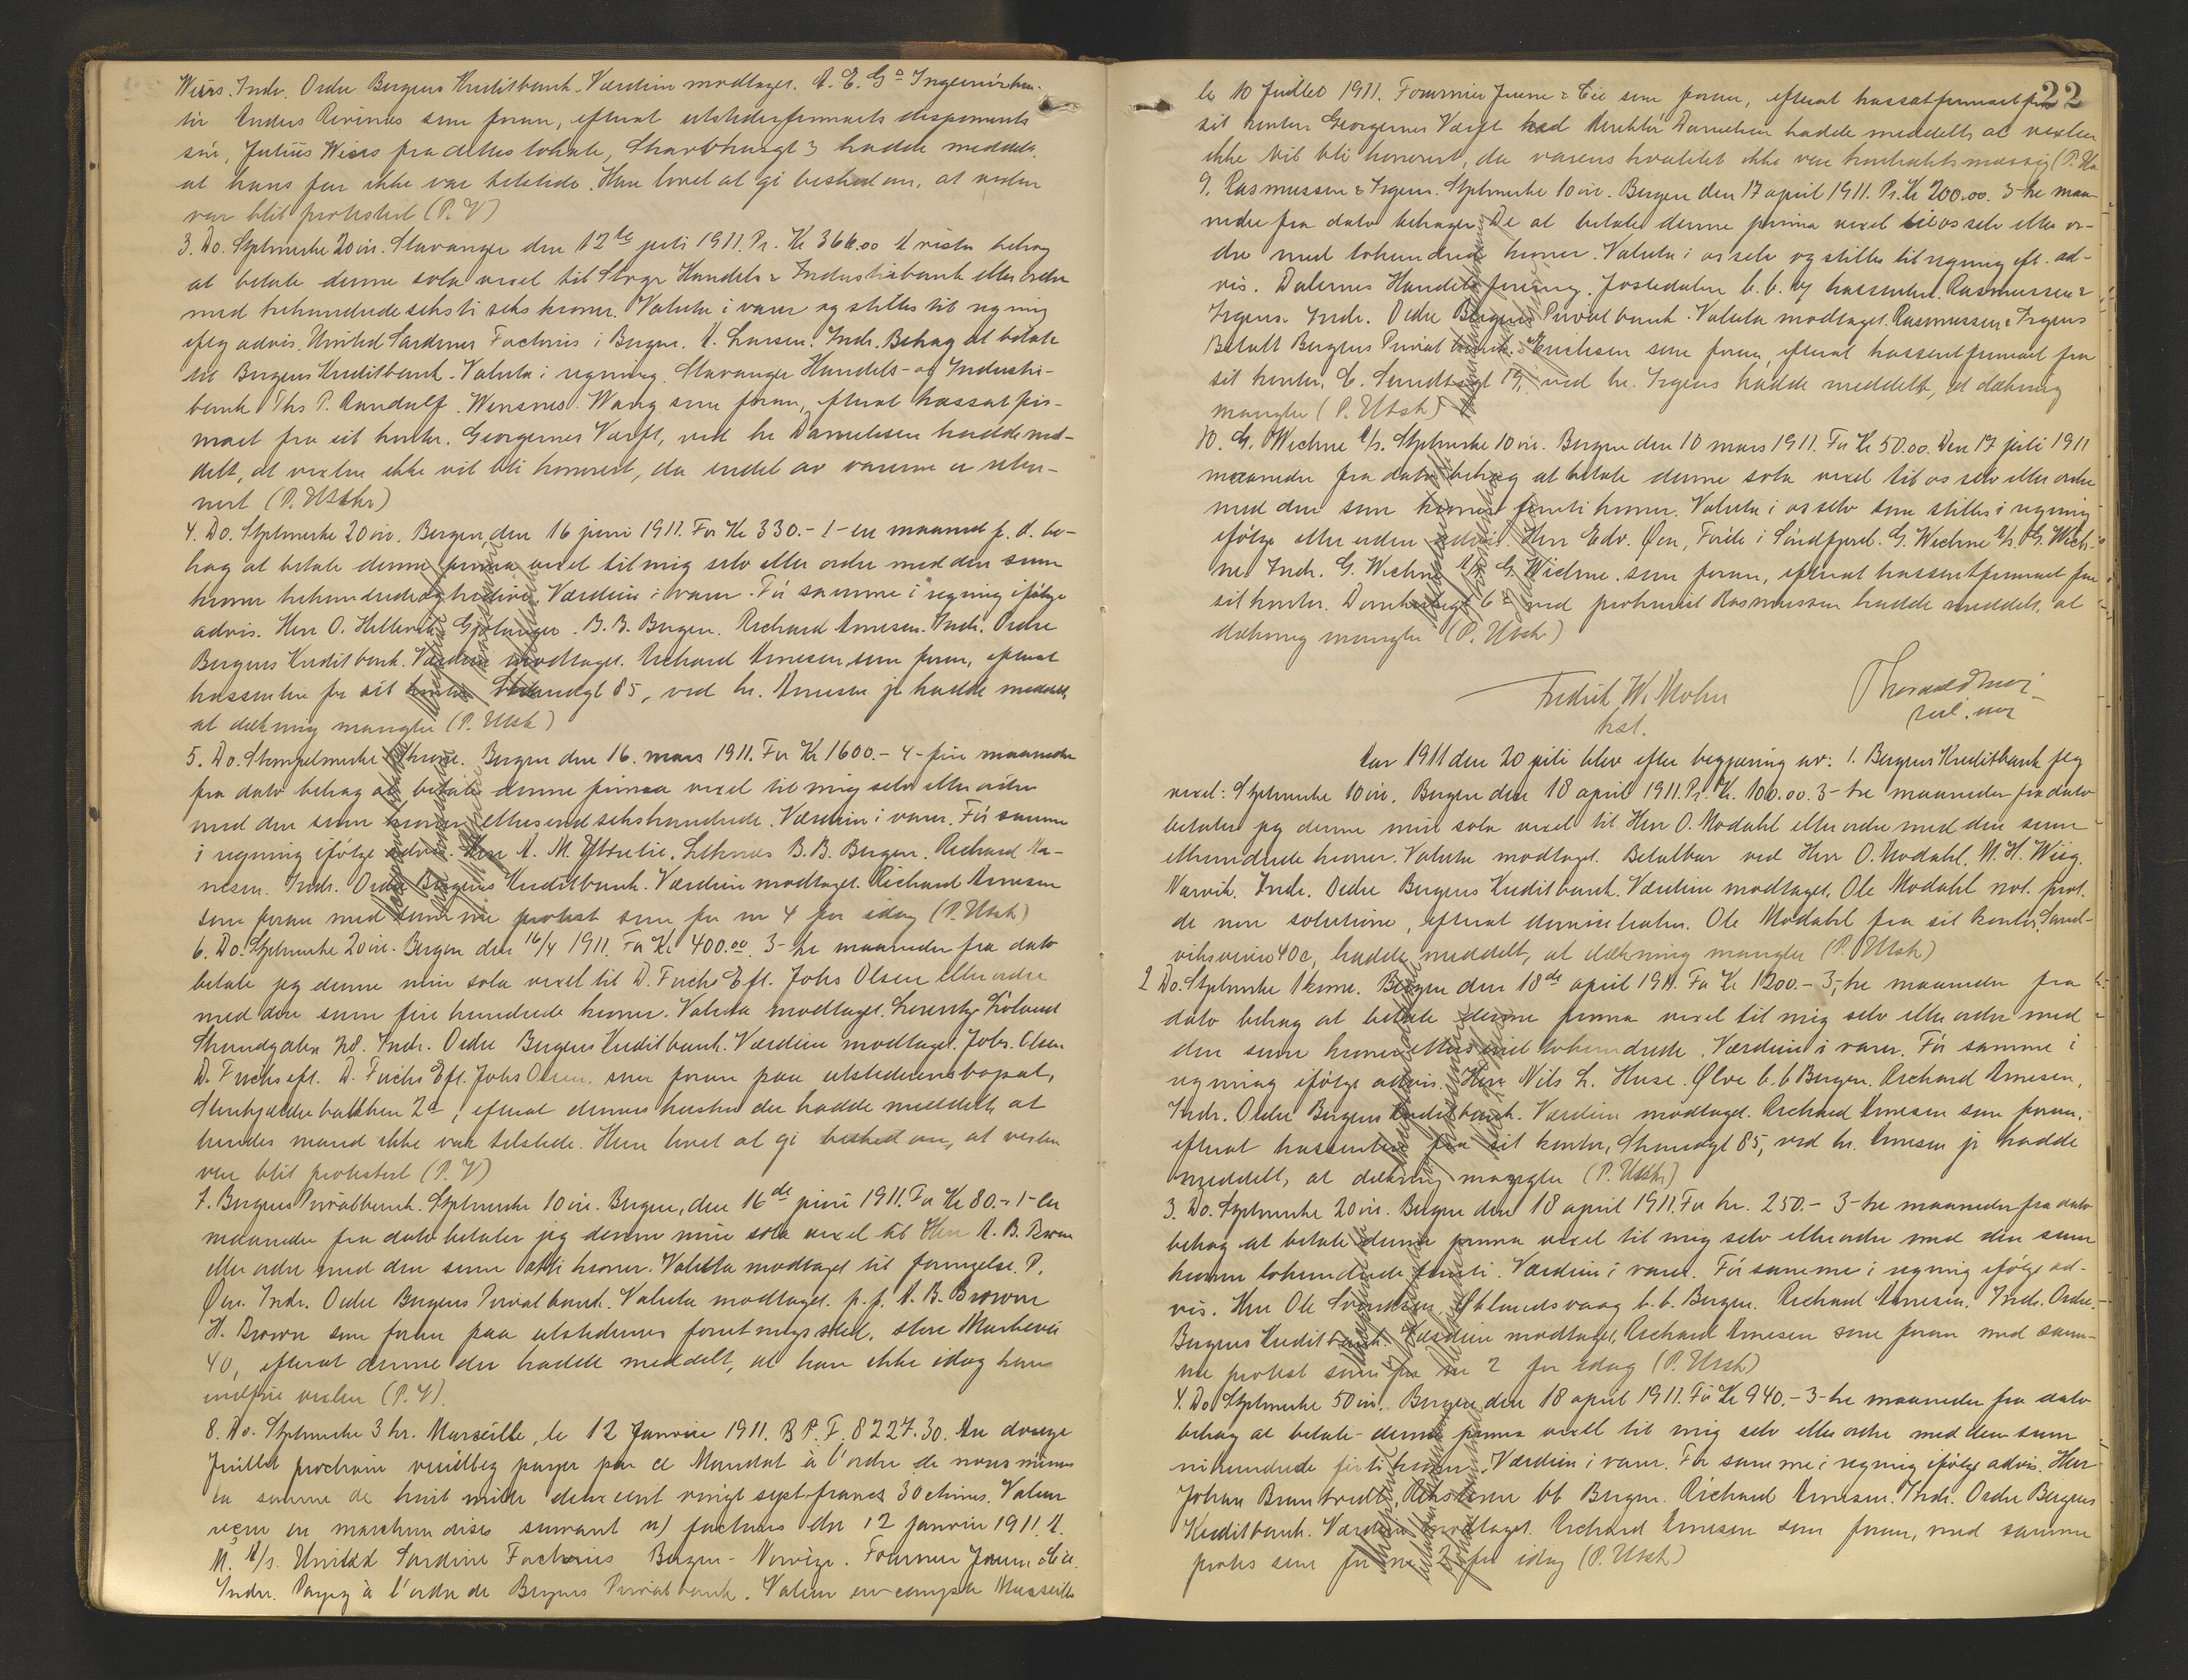 Wiers. Indr. Ordre Bergens Kreditbank. Værdien modtaget. A. E. G. Ingeniörkon-
tör Anders Rivenes som foran, efterat utstederfirmaets disponents
sön, Julius Wiers fra dettes lokale, Skarvhusgt 3 hadde meddelt,
at hans far ikke var tilstede. Han lovet at gi besked om, at vexlen
var blit protestert (P. V)
3. Do. Stplmerke 20 öre. Stavanger den 12te juli 1911. Pr. Kr 366.00 A vista behag
at betale denne sola vexel til Stvgr Handels- & Industribank eller ordre
med trehundredeseksti seks kroner. Valuta i varer og stilles til regning
iflg advis. United Sardines Factories i Bergen. A. Larsen. Indr. Behag at betale
til Bergens Kreditbank. Valuta i regning. Stavanger Handels- og Industri-
bank Ths P. Randulf. Wensnes. Wang som foran, efterat trassatfir-
maet fra sit kontor. Georgernes Værft, ved hr Danielsen hadde med-
delt, at vexlen ikke vil bli honorert, da endel av varerne er retur-
nert (P. Utstr)
4. Do. Stplmerke 20 öre. Bergen den 16 juni 1911. For Kr 330.- 1- en maaned f. d. be-
hag at betale denne prima vexel til mig selv eller ordre med den sum
kroner trehundredeogtredive. Værdien i varer. För samme i regning ifölge
advis. Herr O. Hillevik Gjelanger. B. B. Bergen. Richard Arnesen. Indr. Ordre
Bergens Kreditbank. Værdien modtaget. Richard Arnesen, som foran, efterat
trassenten fra sit kontor Strandgt 85, ved hr. Arnesen jr hadde meddelt,
at dækning mangler (P. Utstr)
5. Do. Stempelmerke 1 krone. Bergen den 16. mars 1911. For Kr 1600.- 4- fire maaneder
fra dato behag at betale denne prima vexel til mig selv eller ordre
med den sum kroner ettusendsekshundrede. Værdien i varer. För samme
i regning ifölge advis. Herr A. M. Ytrelie. Leknes B. B. Bergen. Richard Ar-
nesen. Indr. Ordre Bergens Kreditbank. Værdien modtaget. Richard Arnesen
som foran med samme protest som for nr 4 for idag (P. Utstr)
6. Do. Stplmerke 20 öre. Bergen den 16/4 1911. For Kr 400.00. 3- tre maaneder fra dato
betale jeg denne min sola vexel til D. Fuchs Eft. Johs Olsen eller ordre
med den sum fire hundrede kroner. Valuta modtaget. Lorentz Löland
Strandgaten 78. Indr. Ordre Bergens Kreditbank. Værdien modtaget. Johs. Olsen
D. Fuchs eft. D. Fuchs Eft. Johs Olsen. som foran paa utstederens bopæl,
Stenkjælderbakken 2a, efterat dennes hustru der hadde meddelt, at
hendes mand ikke var tilstede. Hun lovet at gi besked om, at vexlen
var blit protestert (P. V)
7. Bergens Privatbank. Stplmerke 10 öre. Bergen, den 16de juni 1911. For Kr 80.- 1- en
maaneder fra dato betaler jeg denne min sola vexel til Herr A. B. Brown
eller ordre med den sum otti kroner. Valuta modtaget til fornyelse. P.
Öen. Indr. Ordre Bergens Privatbank. Valuta modtaget. p.p. A. B. Brown
H. Brown som foran paa utstederens forretningssted, store Markevei
40, efterat denne der hadde meddelt, at han ikke idag kan
indfrie vexlen (P. V).
8. Do. Stplmerke 3 kr. Marseille, le 12 Janvier 1911. B. P. F. 8227.30. Au douze
Juillet prochain veuillez payer par ce Mandat à l'ordre de nous mêmes
la somme de huit mille deux cent vingt sept francs 30 ctimes. Valeur
reçue en marchandises suivant n/ factures du 12 janvier 1911. A.
M. A/s. United Sardine Factories Bergen - Norvège. Fournier Jeune & Cie.
Indr. Payez à l'ordre de Bergens Privatbank. Valeur en compte Marseille
22
le 10 Juillet 1911. Fournier Jeune & Cie som foran, efterat trassatfirmaet fra
sit kontor Georgernes Værft ved direktör Danielsen hadde meddelt, at vexlen
ikke vil bli honorert, da varens kvalitet ikke var kontraktsmæssig (P.
9. Rasmussen & Irgens. Stplmerke 10 öre. Bergen den 17 april 1911. Pr. Kr 200.00. 3- tre maa-
neder fra dato behager De at betale denne prima vexel til os selv eller or-
dre med tohundrede kroner. Valuta i os selv og stilles til regning eft. ad-
vis. Dalernes Handelsforening. Jostedalen b. b. trassentert. Rasmussen &
Irgens Indr. Ordre Bergens Privatbank. Valuta modtaget. Rasmussen & Irgens
Betalt Bergens Privatbank. Erichsen som foran, efterat trassentfirmaet fra
sit kontor, C. Sundtsgt 19, ved hr. Irgens hadde meddelt, at dækning
mangler (P. Utstr)
10. G. Wiehne A/s. Stplmerke 10 öre. Bergen den 10 mars 1911. For Kr 50.00. Den 17 juli 1911
maaneder fra dato behag at betale denne sola vexel til os selv eller ordre
med den sum kroner femti kroner. Valuta i os selv som stilles i regning
ifölge eller uden advis. Herr Edv. Öen, Förde i Söndfjord. G. Wiehne A/s. G. Wieh-
ne. Indr. G. Wiehne A/s G. Wiehne. som foran, efterat trassentfirmaet fra
sit kontor. Domkirkegt 6 ved prokurist Rasmussen hadde meddelt, at
dækning mangler (P. Utstr)
Fredrik W. Mohn
kst.
Aar 1911 den 20 juli blev efter begjæring av: 1. Bergens Kreditbank flg
vexel: Stplmerke 10 öre. Bergen den 18 april 1911. Pr. Kr. 100.00. 3- tre maaneder fra dato
betaler jeg denne min sola vexel til Herr O. Modahl eller ordre med den sum
ethundrede kroner. Valuta modtaget. Betalbar ved Herr O. Modahl. M. H. Wiig.
Narvik. Indr. Ordre Bergens Kreditbank. Værdien modtaget. Ole Modahl not. prot.
de non solutione, efterat domiciliaten. Ole Modahl fra sit kontor, Sand-
viksveien 40c, hadde meddelt, at dækning mangler (P. Utstr)
2 Do. Stplmerke 1 krone. Bergen den 18de april 1911. For Kr 1200.- 3,- tre maaneder fra
dato behag at betale denne prima vexel til mig selv eller ordre med
den sum kroner ettusind tohundrede. Værdien i varer. För samme i
regning ifölge advis. Herr Nils L. Huse. Ölve b. b Bergen. Richard Arnesen.
Indr. Ordre Bergens Kreditbank. Værdien modtaget. Richard Arnesen som foran,
efterat trassenten fra sit kontor, Strandgt 85, ved hr. Arnesen jr hadde
meddelt, at dækning mangler (P. Utstr)
3. Do. Stplmerke 20 öre. Bergen den 18 april 1911. For kr. 250.- 3- tre maaneder fra dato
behag at betale denne prima vexel til mig selv eller ordre med den sum
kroner tohundrede femti. Værdien i varer. För samme i regning ifölge ad-
vis. Herr Ole Svendsen. b. b. Bergen. Richard Arnesen. Indr. Ordre.
Bergens Kreditbank. Værdien modtaget. Richard Arnesen som foran med sam-
me protest som for nr 2 for idag (P. Utstr)
4. Do Stplmerke 50 öre. Bergen den 18 april 1911. För Kr 940.- 3- tre maaneder fra dato
behag at betale denne prima vexel til mig selv eller ordre med den sum
nihundrede firti kroner. Værdien i varer. För samme i regning ifölge advis. Herr
Johan bb Bergen. Richard Arnesen. Indr. Ordre Bergens
Kreditbank. Værdien modtaget. Richard Arnesen som foran, med samme
protes som for nr 2 for idag (P. Utstr)